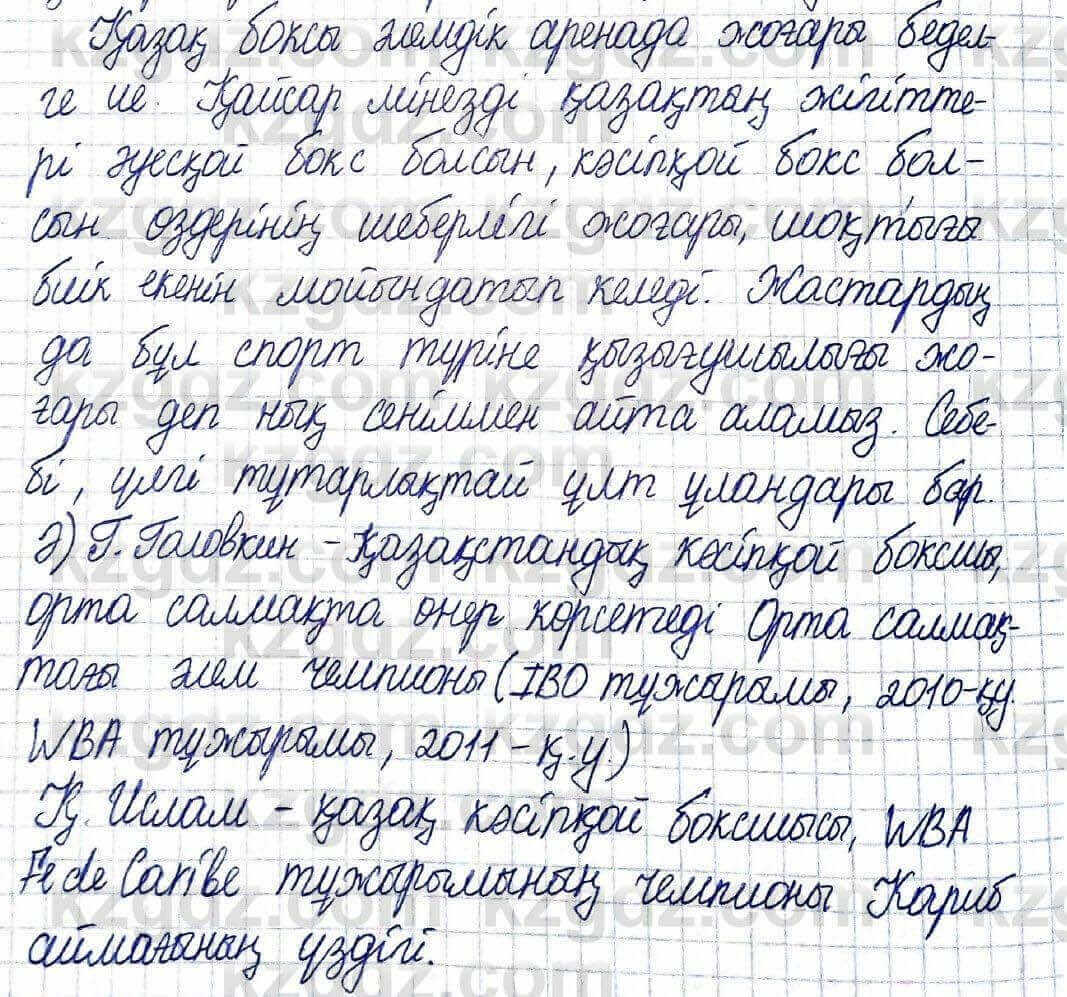 Қазақ боксы әлемдік аренада жоғары бедел-
ге ие. Қайсар мінезді қазақтың жігітте-
рі әуесқой бокс болсын, кәсіпқой бокс бол-
сын өздерінің шеберлігі жоғары, шоқтығы
биік екенін мойындатып келеді. Жастардың
да бұл спорт түріне қызығушылығы жо-
ғары деп нық сеніммен айта аламыз. Себе-
бі, үлгі тұтарлықтай ұлт ұландары бар.
ә) Г. Головкин – Қазақстандық кәсіпқой боксшы,
орта салмақта өнер көрсетеді Орта салмақ-
тағы әлем чемпионы (IBO тұжырымы, 2010-қ.у.
WBA тұжырымы, 2011 – қ.у.)
Қ. Ислам – қазақ кәсіпқой боксшысы, WBA
Fede Caribe тұжырымының чемпионы Кариб
аймағының үздігі.
kzgdz.com